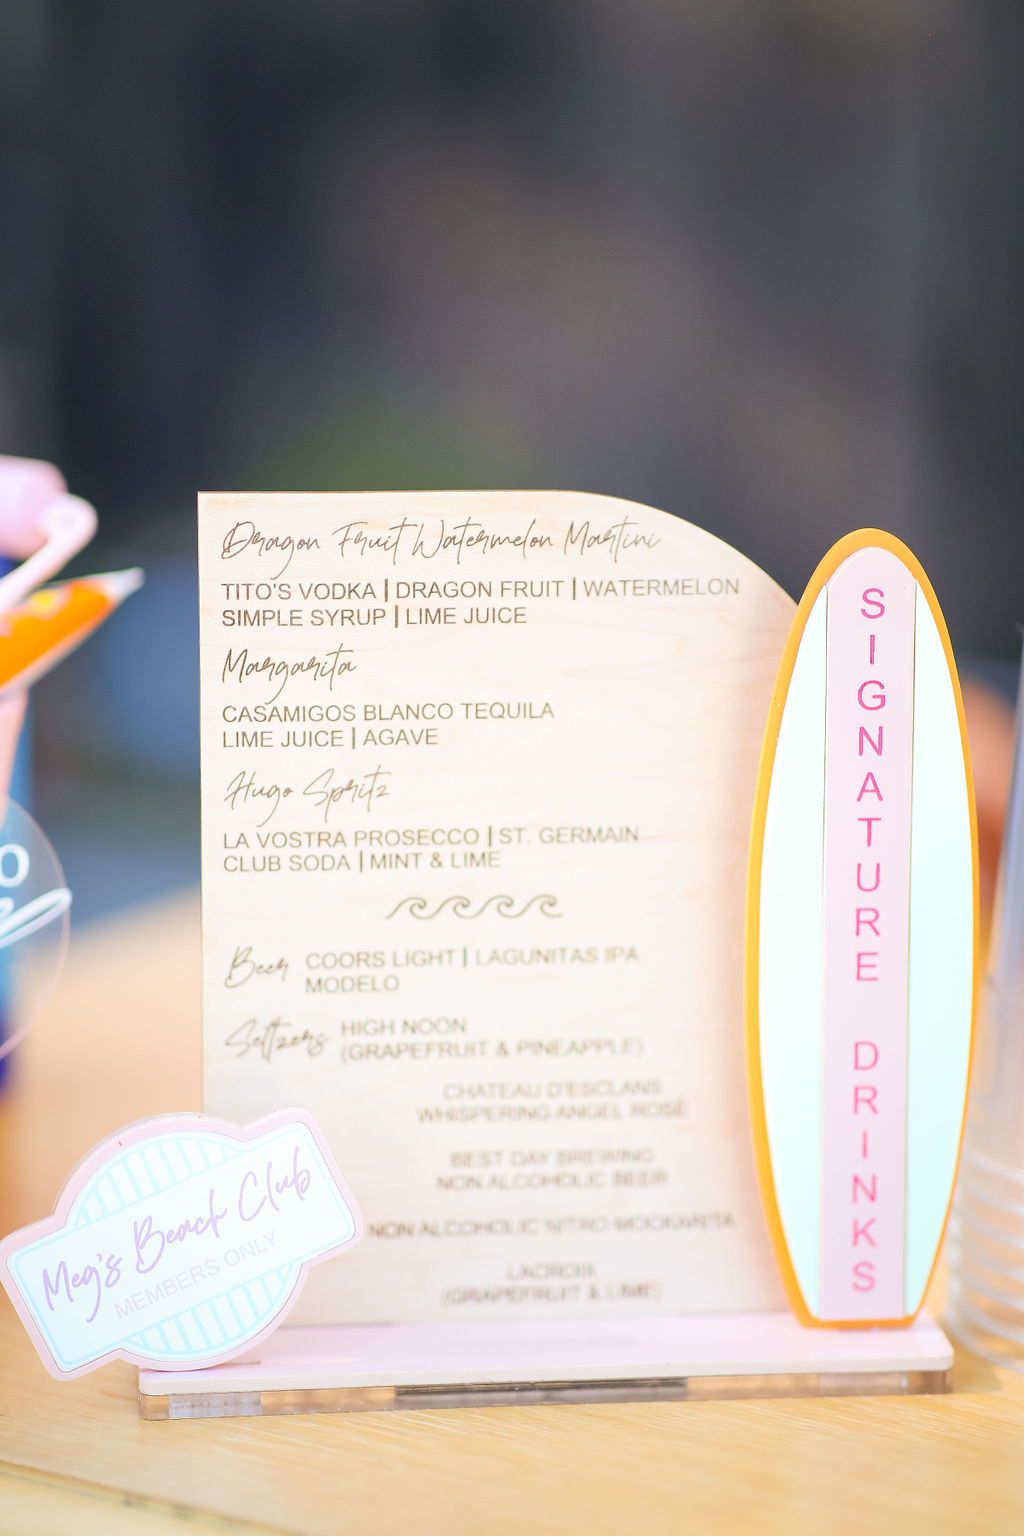 Dragon Fruit Watermelon Martini
TITO'S VODKA | DRAGON FRUIT | WATERMELON
SIMPLE SYRUP | LIME JUICE
Margarita
CASAMIGOS BLANCO TEQUILA
LIME JUICE | AGAVE
Hugo Spritz
LA VOSTRA PROSECCO | ST. GERMAIN
CLUB SODA | MINT & LIME
Beer COORS LIGHT | LAGUNITAS IPA
MODELO
Seltzers HIGH NOON
(GRAPEFRUIT & PINEAPPLE)
CHATEAU D'ESCLANS
WHISPERING ANGEL ROSÉ
BEST DAY BREWING
NON ALCOHOLIC BEER
NON ALCOHOLIC NITRO MOCKARITA
LACROIX
(GRAPEFRUIT & LIME)
SIGNATURE DRINKS
Meg's Beach Club
MEMBERS ONLY